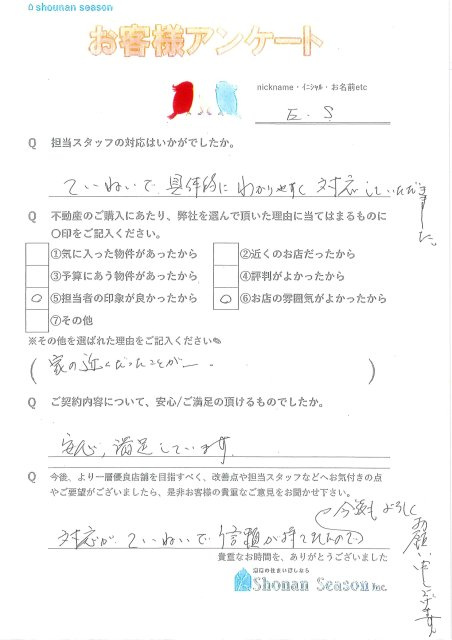 shounan season
お客様アンケート
nickname・ｲﾆｼｬﾙ・お名前etc
E. S
Q 担当スタッフの対応はいかがでしたか。
ていねいで、具体的にわかりやすく対応していただきました。
Q 不動産のご購入にあたり、弊社を選んで頂いた理由に当てはまるものに
〇印をご記入ください。
①気に入った物件があったから ②近くのお店だったから
③予算にあう物件があったから ④評判がよかったから
○ ⑤担当者の印象が良かったから ○ ⑥お店の雰囲気がよかったから
⑦その他
※その他を選ばれた理由をご記入ください✎
( 家の近くだったことが一。 )
Q ご契約内容について、安心/ご満足の頂けるものでしたか。
安心、満足しています。
Q 今後、より一層優良店舗を目指すべく、改善点や担当スタッフなどへお気付きの点
やご要望がございましたら、是非お客様の貴重なご意見をお聞かせ下さい。
対応がていねいで信頼が持てたので
今後もよろしくお願い申し上げます。
貴重なお時間を、ありがとうございました
湘南の住まい探しなら
Shonan Season Inc.